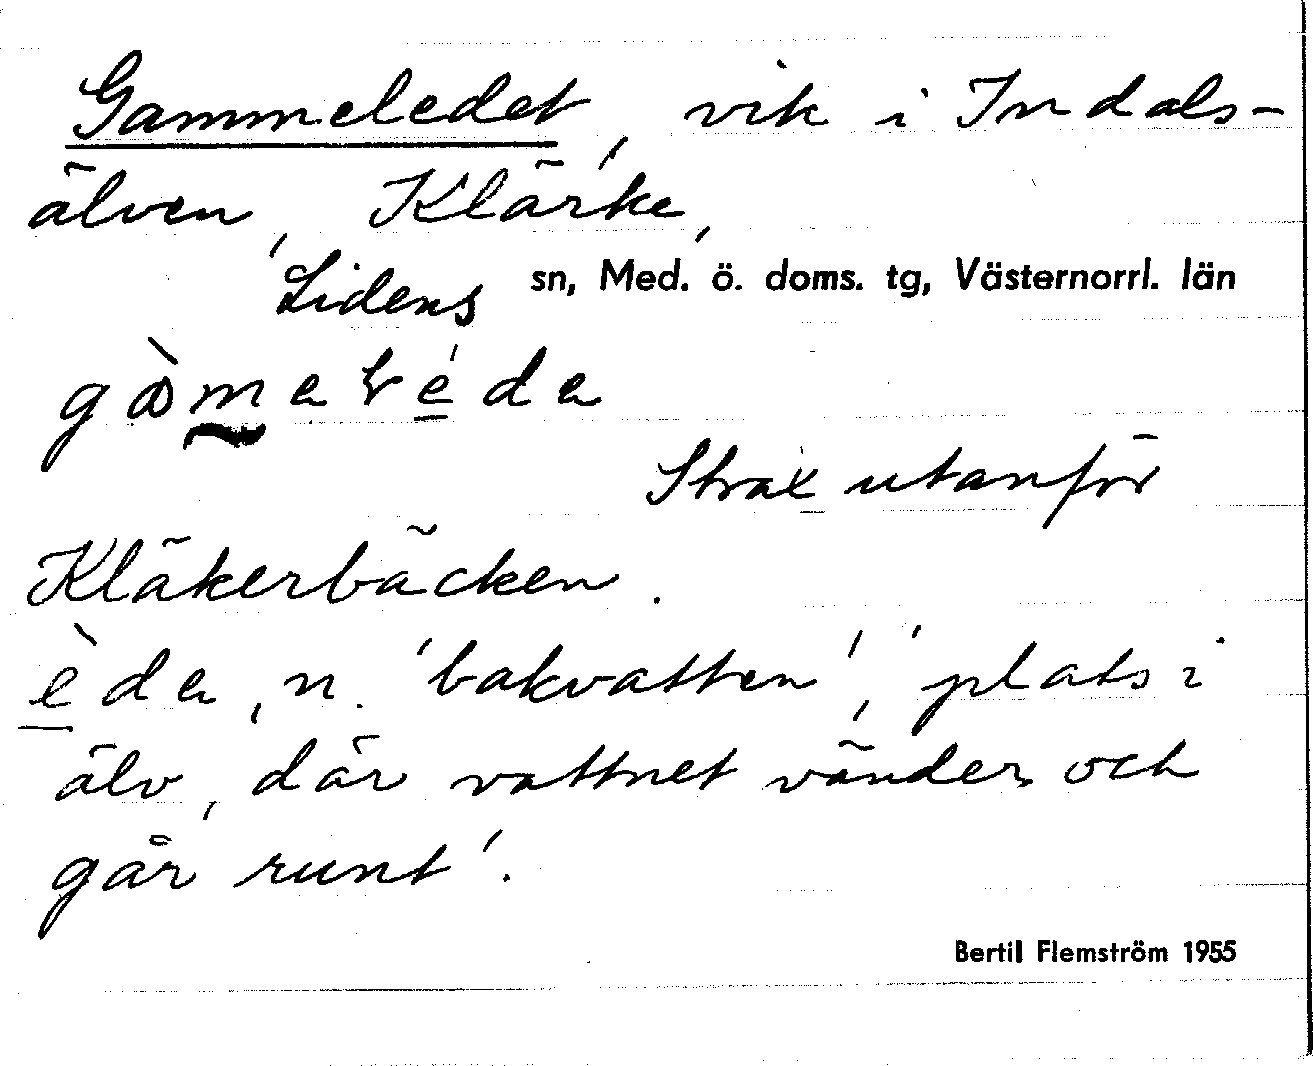 Gammeledet, vik i Indals-
älven, Klärke,
Lidens sn, Med. ö. doms. tg, Västernorrl. län
Strax utanför
Kläkerbäcken.
èda, n. 'bakvatten', 'plats i
älv, där vattnet vänder och
går runt'.
Bertil Flemström 1955